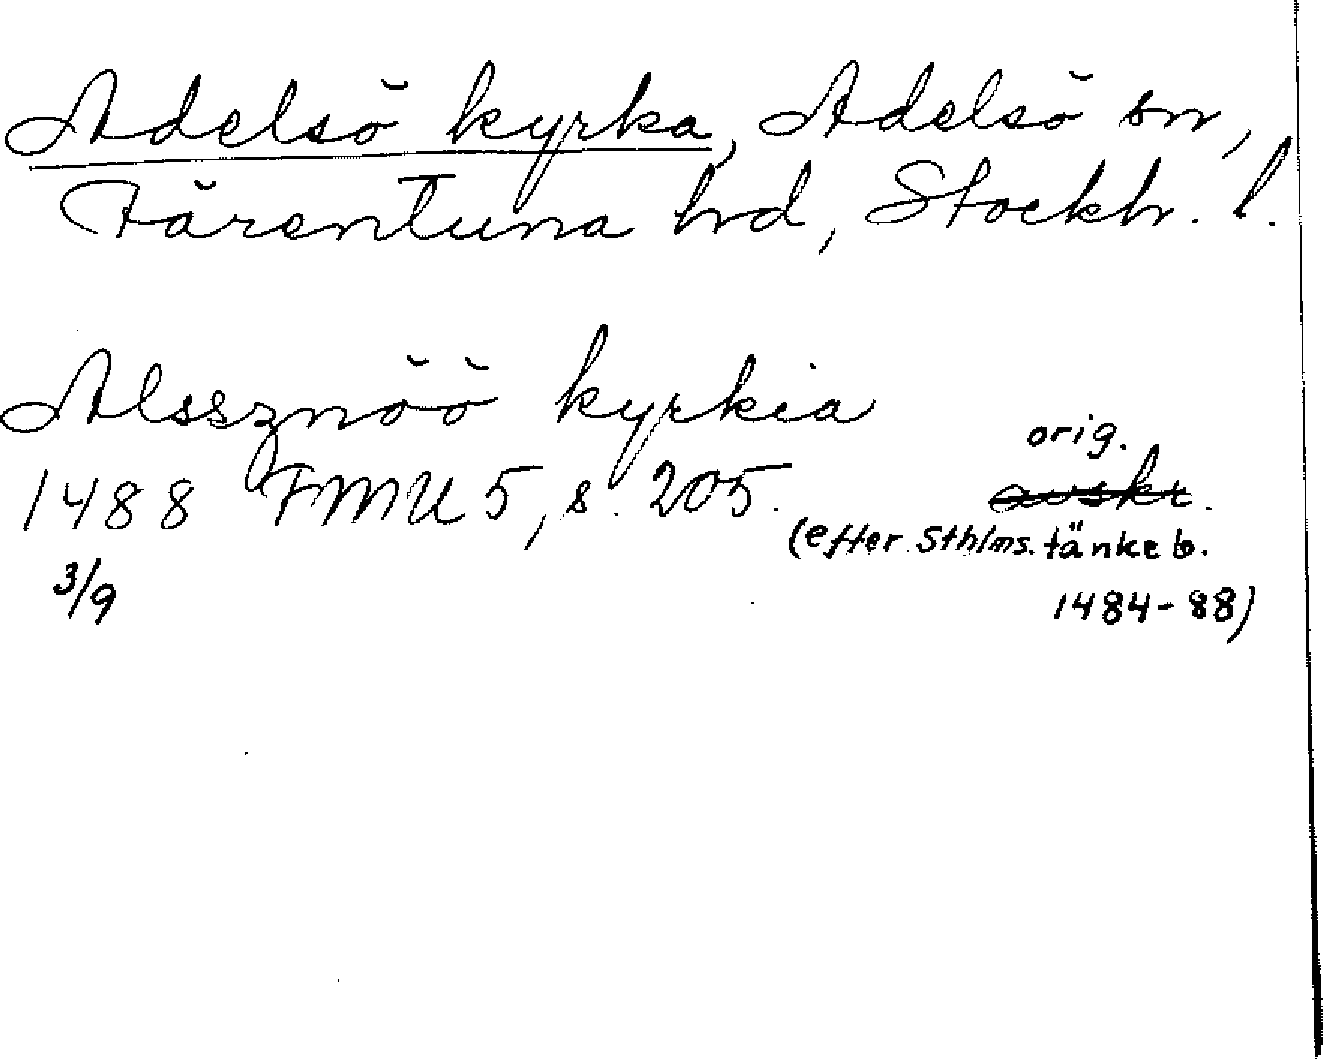 Adelsö kyrka, Adelsö sn,
Färentuna hd, Stockh. l.
Alssznöö kyrkia
orig.
1488 FMU 5, s. 205. avskr.
(efter Sthlms. tänkeb.
3/9
1484-88)